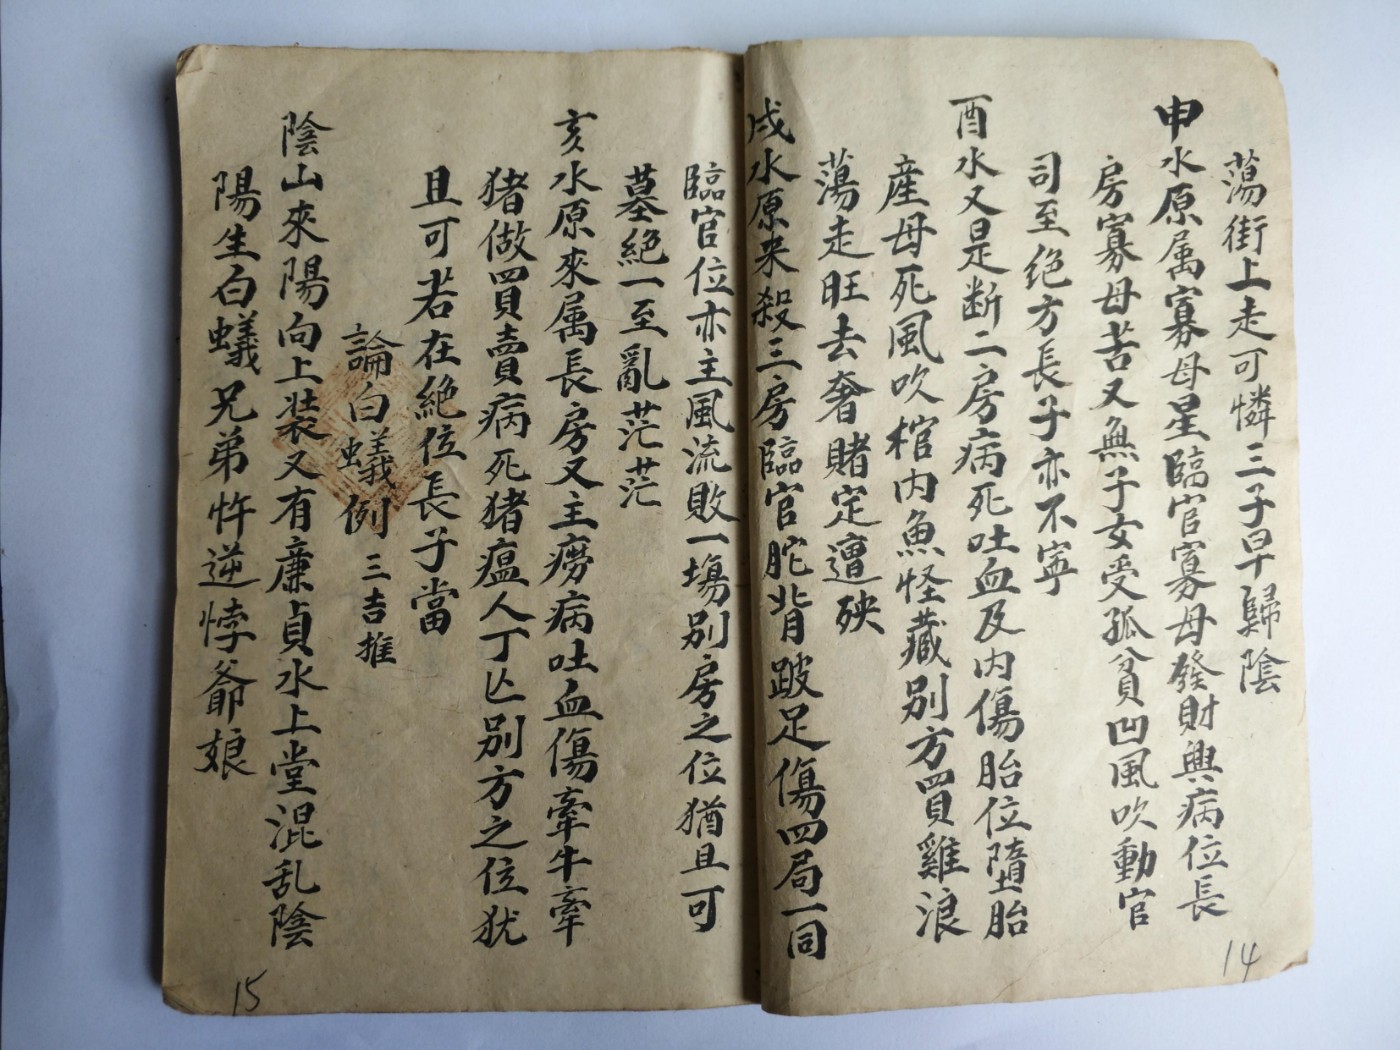 蕩街上走可憐三子早歸陰
申水原属寡母星臨官寡母發財興病位長
房寡母苦又無子女受孤貧凹風吹動官
司至绝方長子亦不寧
酉水又是断二房病死吐血及内傷胎位墮胎
産母死風吹棺内魚怪藏别方買雞浪
蕩走旺去奢賭定遭殃
戌水原来殺三房臨官陀背跛足傷四局一同
14
臨官位亦主風流敗一塲别房之位猶且可
墓絶一至亂茫茫
亥水原來属長房又主癆病吐血傷牽牛牽
猪做買賣病死猪瘟人丁亡别方之位犹
且可若在絶位長子當
論白蟻例 三吉推
陰山來陽向上裝又有亷貞水上堂混乱陰
陽生白蟻兄弟忤逆悖爺娘
15